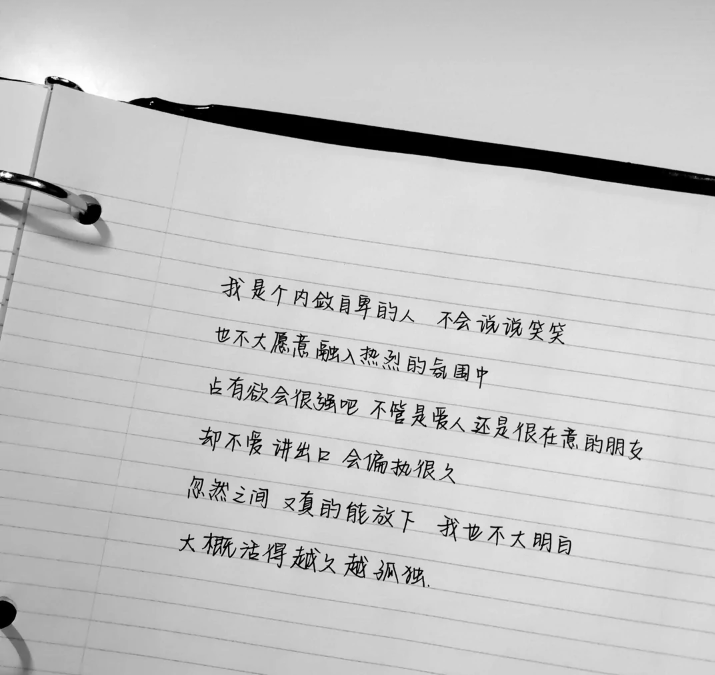 我是个内敛自卑的人 不会说说笑笑
也不大愿意融入热烈的氛围中
占有欲会很强吧 不管是爱人还是很在意的朋友
却不爱讲出口 会偏执很久
忽然之间 又真的能放下 我也不大明白
大概活得越久越孤独.